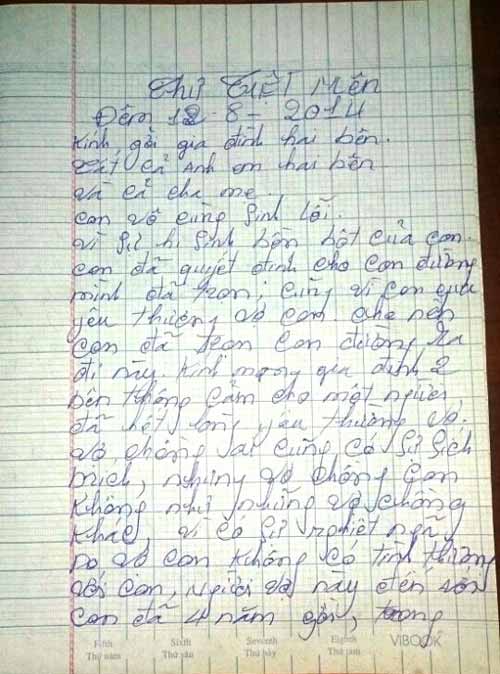 Thư Tuyệt Mện
Đêm 12-8-2014
Kính gởi gia đình hai bên.
tất cả Anh em hai bên
và cả cha mẹ.
con vô cùng sinh lỗi.
vì sự hi sinh bồn bột của con.
con đã quyết định cho con đường
mình đã trọn; cũng vì con quá
yêu thương vợ con cho nên
con đã trọn con đường Ra
đi này. kính mong gia đình 2
bên thông cảm cho một người
đã hết lòng yêu thương vợ.
vợ chồng ai cũng có sự sích
mích, nhưng vợ chồng con
không như những vợ chồng
khác, vì có sự nghiệt ngã
Do vợ con không có tình thương
với con, người vợ này đến với
con đã 4 năm gời, trong
Fifth Sixth Seventh Eighth VIBOOK
Thứ năm Thứ sáu Thứ bảy Thứ tám